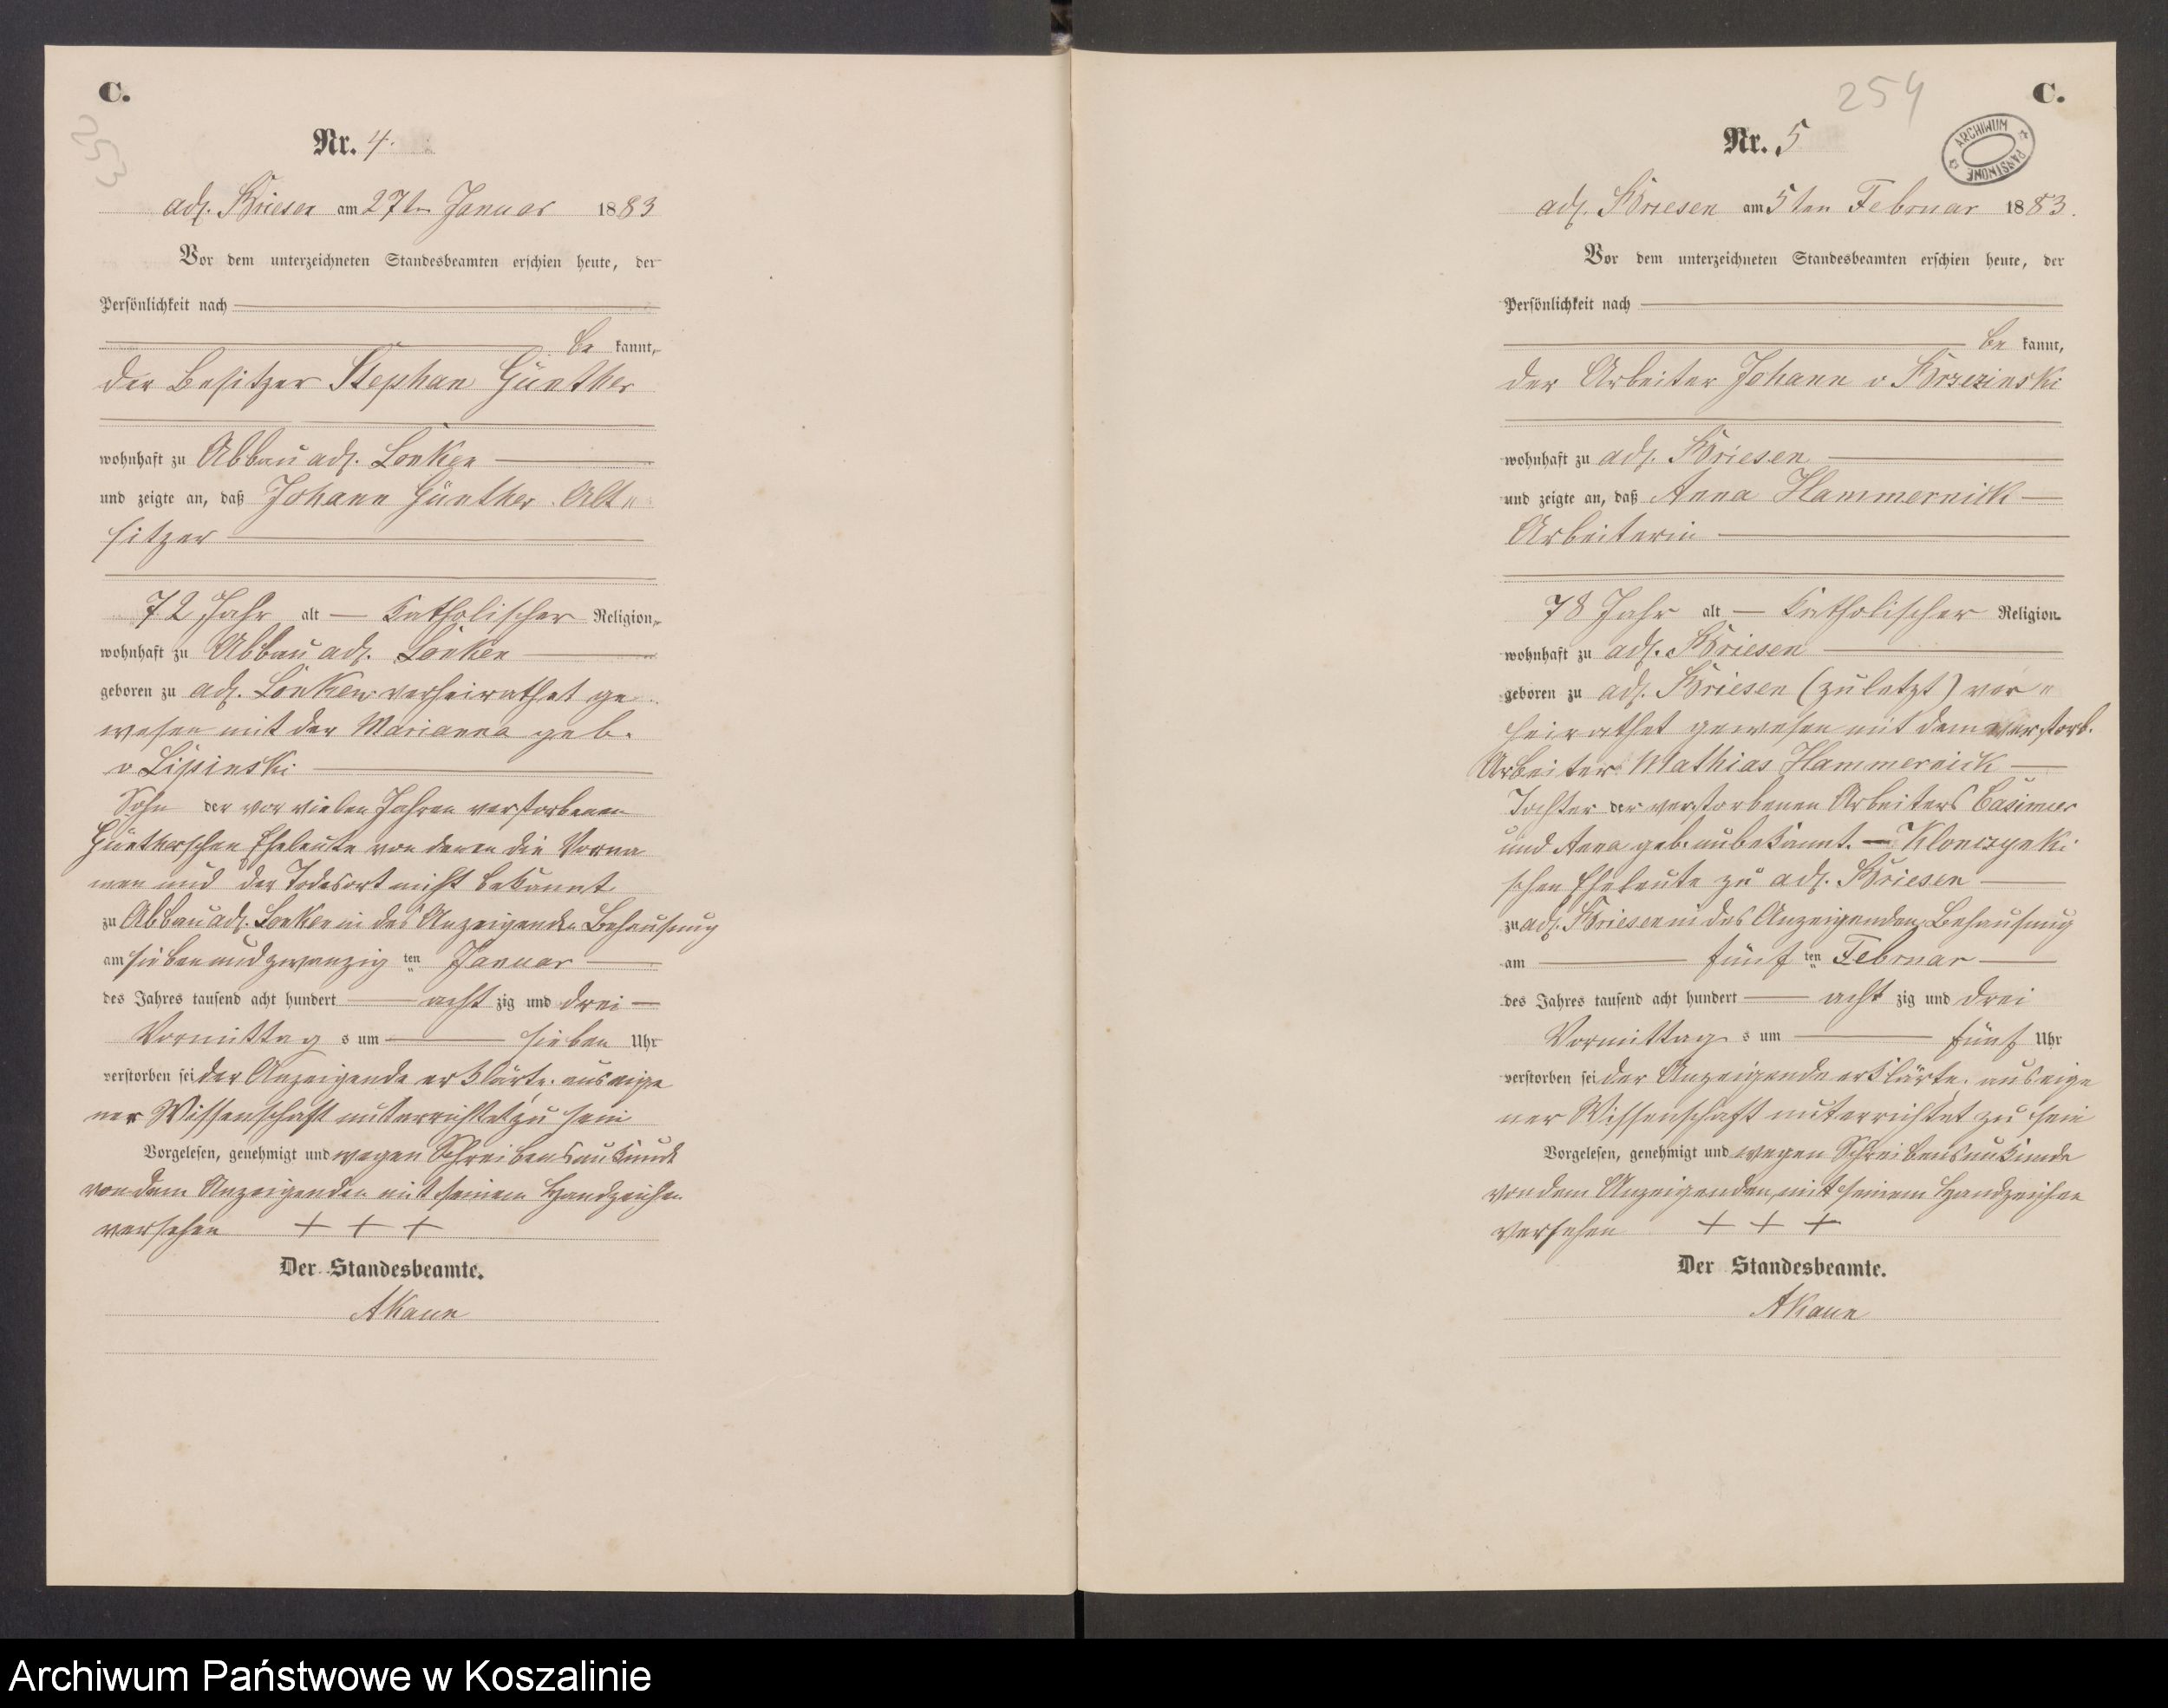 C.
253
Nr. 4.
adl. Briesen am 27ten Januar 1883
Vor dem unterzeichneten Standesbeamten erschien heute, der
Persönlichkeit nach
be kannt,
der Besitzer Stephan Günther
wohnhaft zu Abbau adl. Lonken
und zeigte an, daß Johann Günther Alt„
sitzer
72 Jahr alt — katholischer Religion,
wohnhaft zu Abbau adl. Lonken
geboren zu adl. Lonken verheirathet ge
wesen mit der Marianna geb.
v Lipinski
Sohn der vor vielen Jahren verstorbenen
Güntherschen Eheleute von denen die Vorna
men und der Todesort nicht bekannt
zu Abbau adl. Lonken in des Anzeigenden Behausung
am sieben und zwanzig ten Januar
des Jahres tausend acht hundert acht zig und drei
Vormittag s um sieben Uhr
verstorben sei der Anzeigende erklärte. aus eige
ner Wissenschaft unterrichtet zu sein
Vorgelesen, genehmigt und wegen Schreibensunkunde
von dem Anzeigenden mit seinem Handzeichen
versehen + + +
Der Standesbeamte.
AKaun
254
C.
ARCHIWUM PAŃSTWOWE
Nr. 5
adl. Briesen am 5ten Februar 1883.
Vor dem unterzeichneten Standesbeamten erschien heute, der
Persönlichkeit nach
be kannt,
der Arbeiter Johann v Brzezinski
wohnhaft zu adl. Briesen
und zeigte an, daß Anna Hammernick
Arbeiterin
78 Jahr alt — katholischer Religion
wohnhaft zu adl. Briesen
geboren zu adl. Briesen (zuletzt) ver„
heirathet gewesen mit dem verstorb.
Arbeiter Mathias Hammernick
Tochter der verstorbenen Arbeiters Casimir
und Anna geb. unbekannt. — Klonczynski
schen Eheleute zu adl. Briesen
zu adl. Briesen in des Anzeigenden Behausung
am fünf ten Februar
des Jahres tausend acht hundert acht zig und drei
Vormittag s um fünf Uhr
verstorben sei der Anzeigende erklärte. aus eige
ner Wissenschaft unterrichtet zu sein
Vorgelesen, genehmigt und wegen Schreibensunkunde
von dem Anzeigenden mit seinem Handzeichen
versehen + + +
Der Standesbeamte.
AKaun
Archiwum Państwowe w Koszalinie